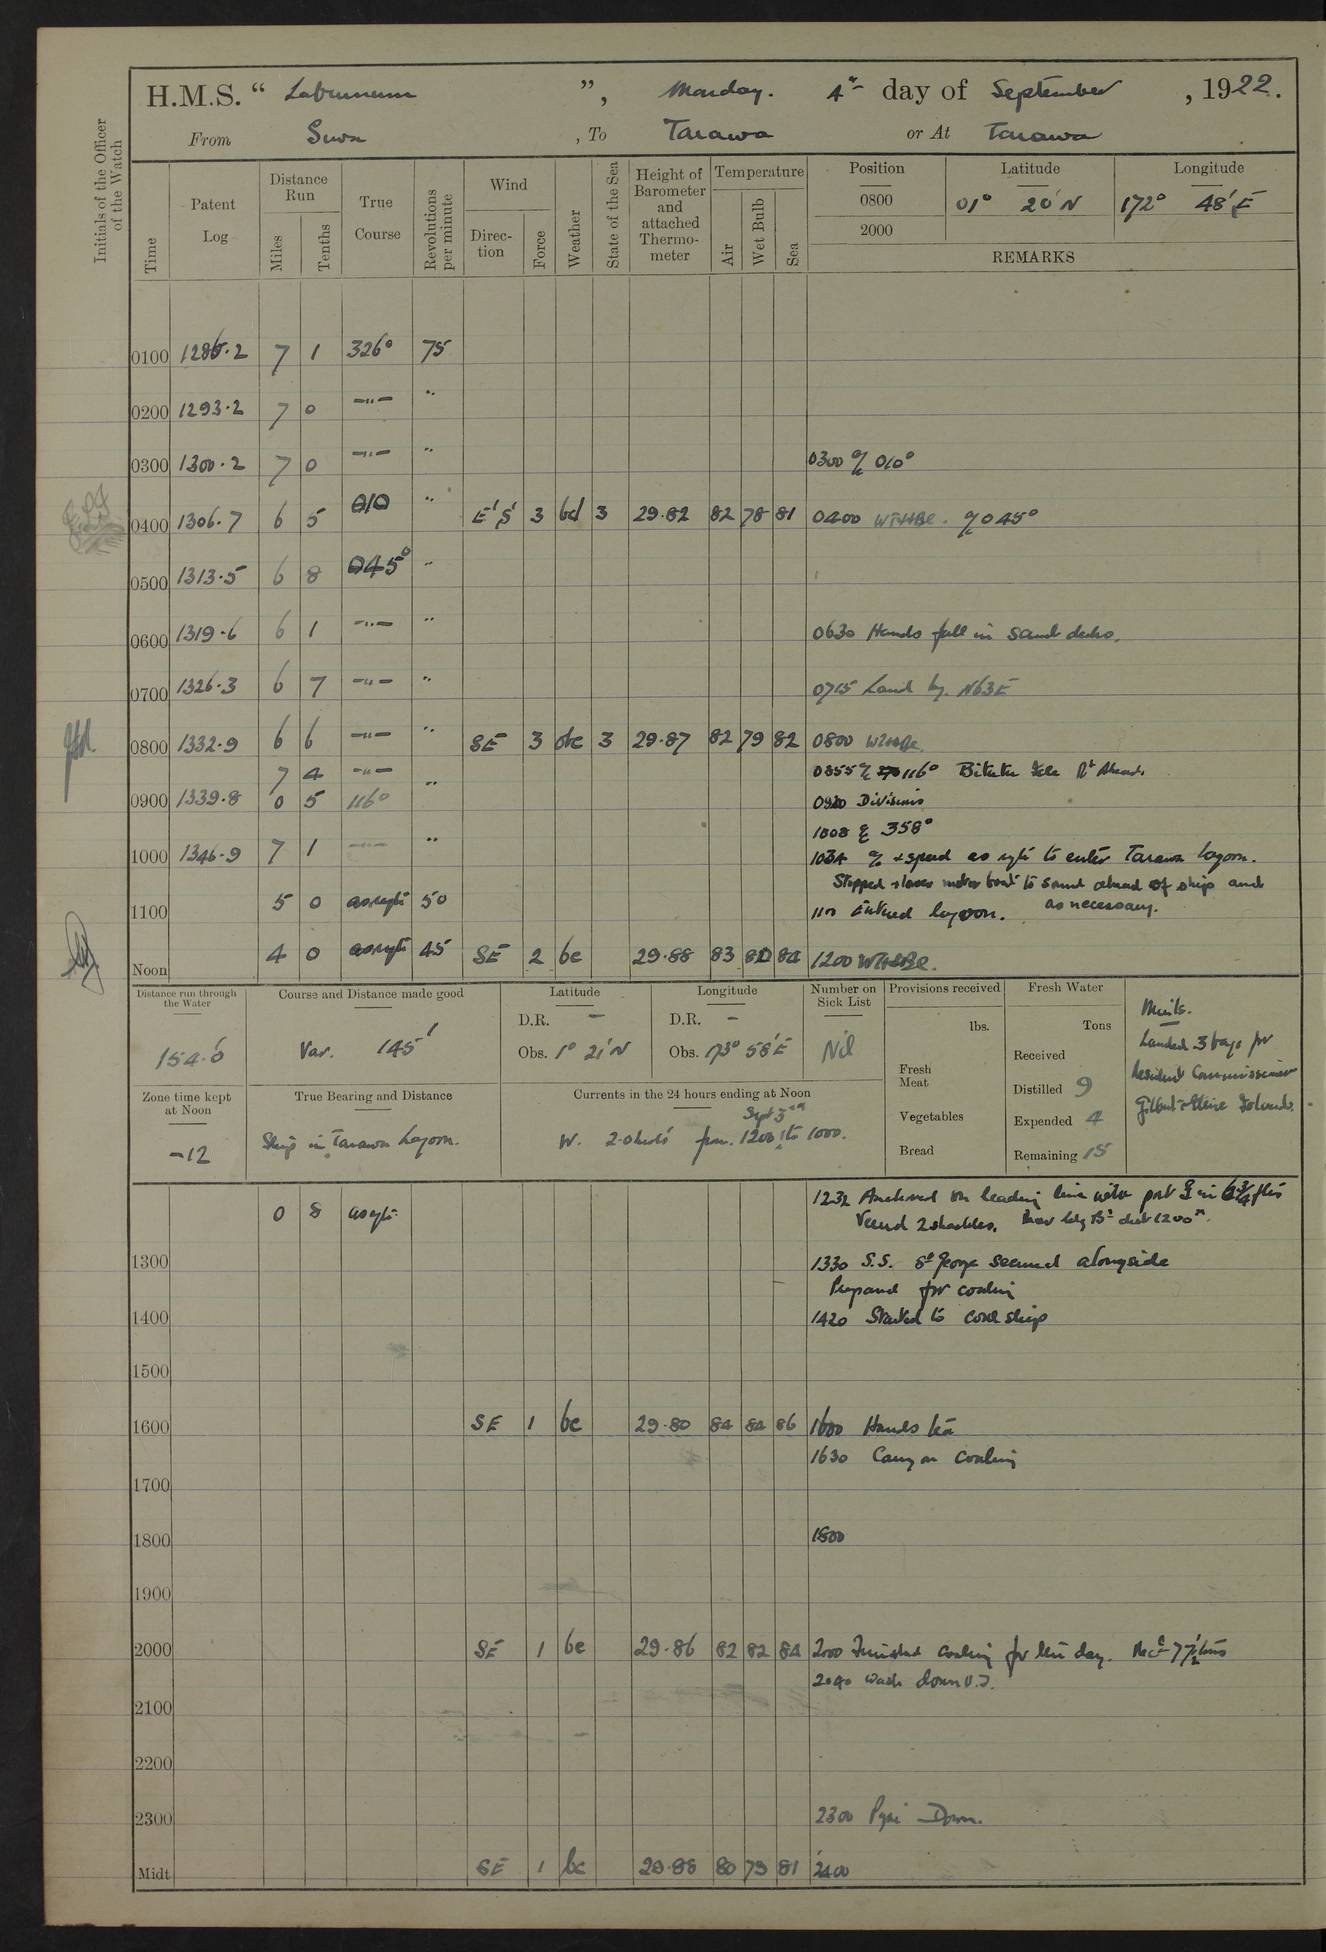 H.M.S. “ Laburnum ”, Monday. 4th day of September, 1922.
From Suva, To Tarawa or At Tarawa
Initials of the Officer of the Watch
Time
Patent Log
Distance Run
Miles
Tenths
True Course
Revolutions per minute
Wind
Direc-tion
Force
Weather
State of the Sea
Height of Barometer and attached Thermo-meter
Temperature
Air
Wet Bulb
Sea
Position Latitude Longitude
0800 01° 20' N 172° 48' E
2000
REMARKS
0100 1286.2 7 1 326° 75
0200 1293.2 7 0 —"— "
0300 1300.2 7 0 —"— " 0300 a/c 010°
0400 1306.7 6 5 010 " E'S' 3 bd 3 29.82 82 78 81 0400 WT+HBC. a/c 045°
0500 1313.5 6 8 045° "
0600 1319.6 6 1 —"— " 0630 Hands fall in Scrub decks.
0700 1326.3 6 7 —"— " 0715 Land bg. N63E
0800 1332.9 6 6 —"— " SE 3 obc 3 29.87 82 79 82 0800
7 4 —"— 0855 a/c 116° Rt Ahead.
0900 1339.8 0 5 116° " 0920 Divisions
1008 a/c 358°
1000 1346.9 7 1 —"— " 1034 a/c + speed as reqte to enter Tarawa Lagoon.
Stopped + lower motor boat to sound ahead of ship and
1100 5 0 as reqte 50 1100 Entered lagoon. as necessary.
Noon 4 0 as reqte 45 SE 2 bc 29.88 83 82 84 1200
Distance run through the Water
154.6
Course and Distance made good
Var. 145'
Latitude
D.R. –
Obs. 1° 21' N
Longitude
D.R. –
Obs. 173° 58' E
Number on Sick List
Nil
Provisions received
lbs.
Fresh Meat
Vegetables
Bread
Fresh Water
Tons
Received
Distilled 9
Expended 4
Remaining 15
Mails.
Landed 3 bags for
Resident Commissioner
Gilbert + Ellice Islands.
Zone time kept at Noon
-12
True Bearing and Distance
Ship in Tarawa Lagoon.
Currents in the 24 hours ending at Noon
Sept 3rd
W. 2.0 knots from 1200 to 1000.
0 8 as reqte 1232 Anchored on leading line with port in 6¾ fms
Veered 2 shackles.
1300 1330 S.S. St George secured alongside
Prepared for coaling
1400 1420 Started to coal ship
1500
1600 SE 1 bc 29.80 84 84 86 1600 Hands tea
1630 Carry on Coaling
1700
1800 1800
1900
2000 SE 1 bc 29.86 82 82 84 2000 Finished coaling for the day. Recd 77½ tons
2040 Wash down U.D.
2100
2200
2300 2300 Pipe Down.
Midt SE 1 bc 29.88 80 79 81 2400